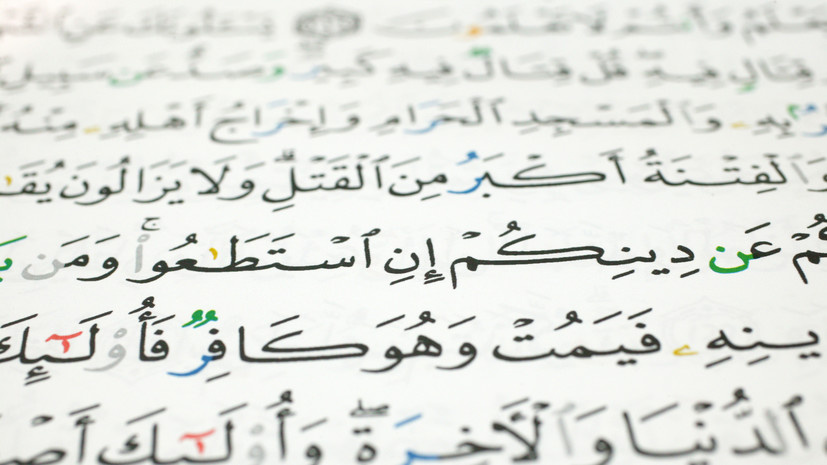 وَأَنتُمْ لَا تَعْلَمُونَ
قِتَالٍ فِيهِ قُلْ قِتَالٌ فِيهِ كَبِيرٌ وَصَدٌّ عَن سَبِيلِ
بِهِۦ وَٱلْمَسْجِدِ ٱلْحَرَامِ وَإِخْرَاجُ أَهْلِهِۦ مِنْهُ
وَٱلْفِتْنَةُ أَكْبَرُ مِنَ ٱلْقَتْلِ ۗ وَلَا يَزَالُونَ يُقَـ
ـكُمْ عَن دِينِكُمْ إِنِ ٱسْتَطَـٰعُوا۟ ۚ وَمَن يَـ
ـينِهِۦ فَيَمُتْ وَهُوَ كَافِرٌ فَأُو۟لَـٰٓئِكَ
ٱلدُّنْيَا وَٱلْـَٔاخِرَةِ ۖ وَأُو۟لَـٰٓئِكَ أَصْـ